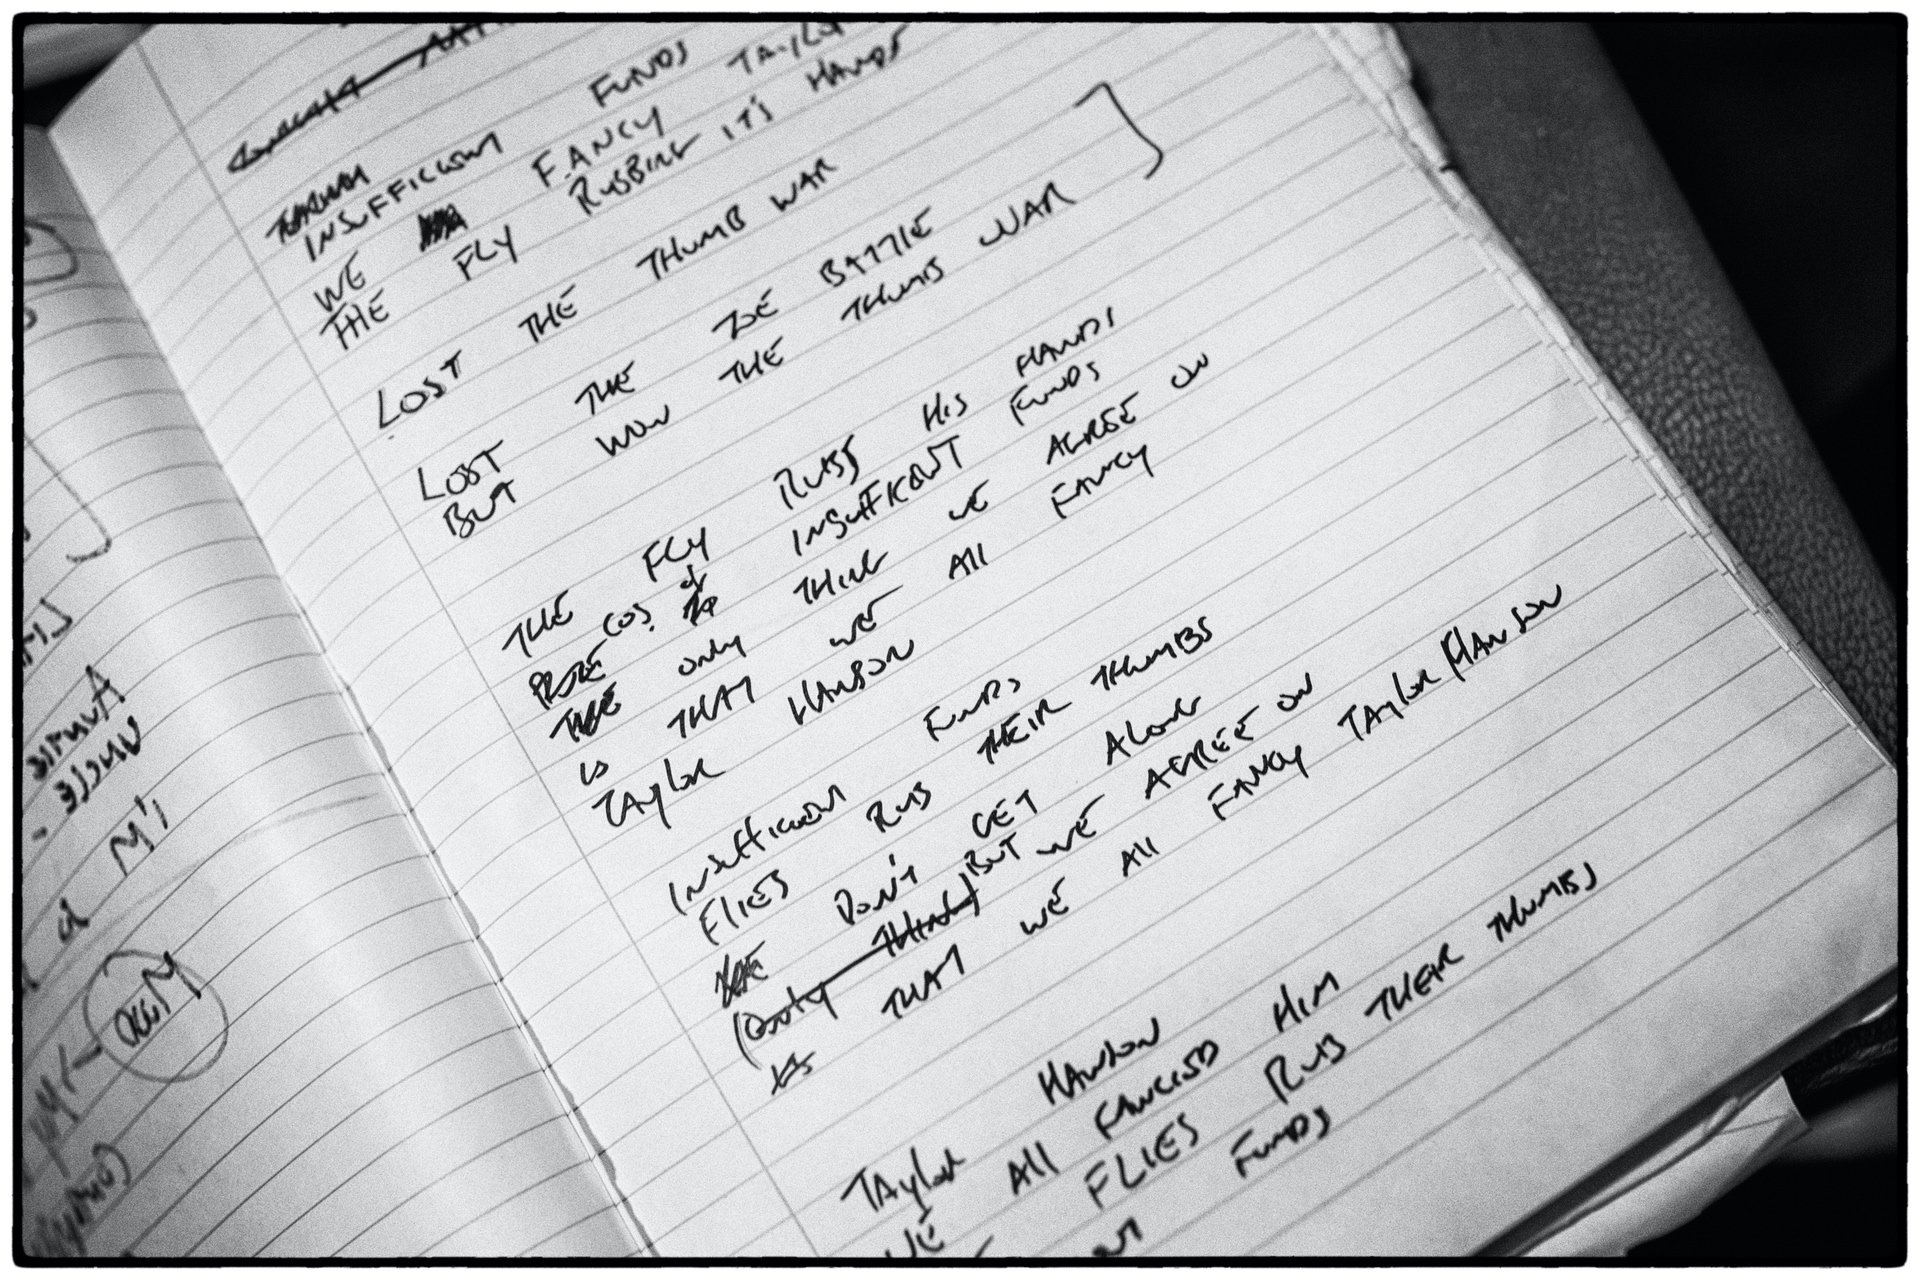 INSUFFICIENT FUNDS
WE FANCY TAYLO
THE FLY RUBBING IT'S HANDS
LOST THE THUMB WAR
LOST THE TOE BATTLE
BUT WON THE THUMB WAR
THE FLY RUBS HIS HANDS
COS. of INSUFFICIENT FUNDS
THE only THING WE AGREE ON
IS THAT WE All FANCY
TAylor HANSON
INSufficient FUNDS
FlIES RUB THEIR THUMBS
DON'T GET AlONG
(Only THING) BUT WE AGREE ON
IS THAT WE All FANCY TAYlor HANSON
TAylor HANSON
WE All FANCIED HIM
FLIES RUB THEIR THUMBS
FUNDS
AUNTIE
UNCLE -
I'M